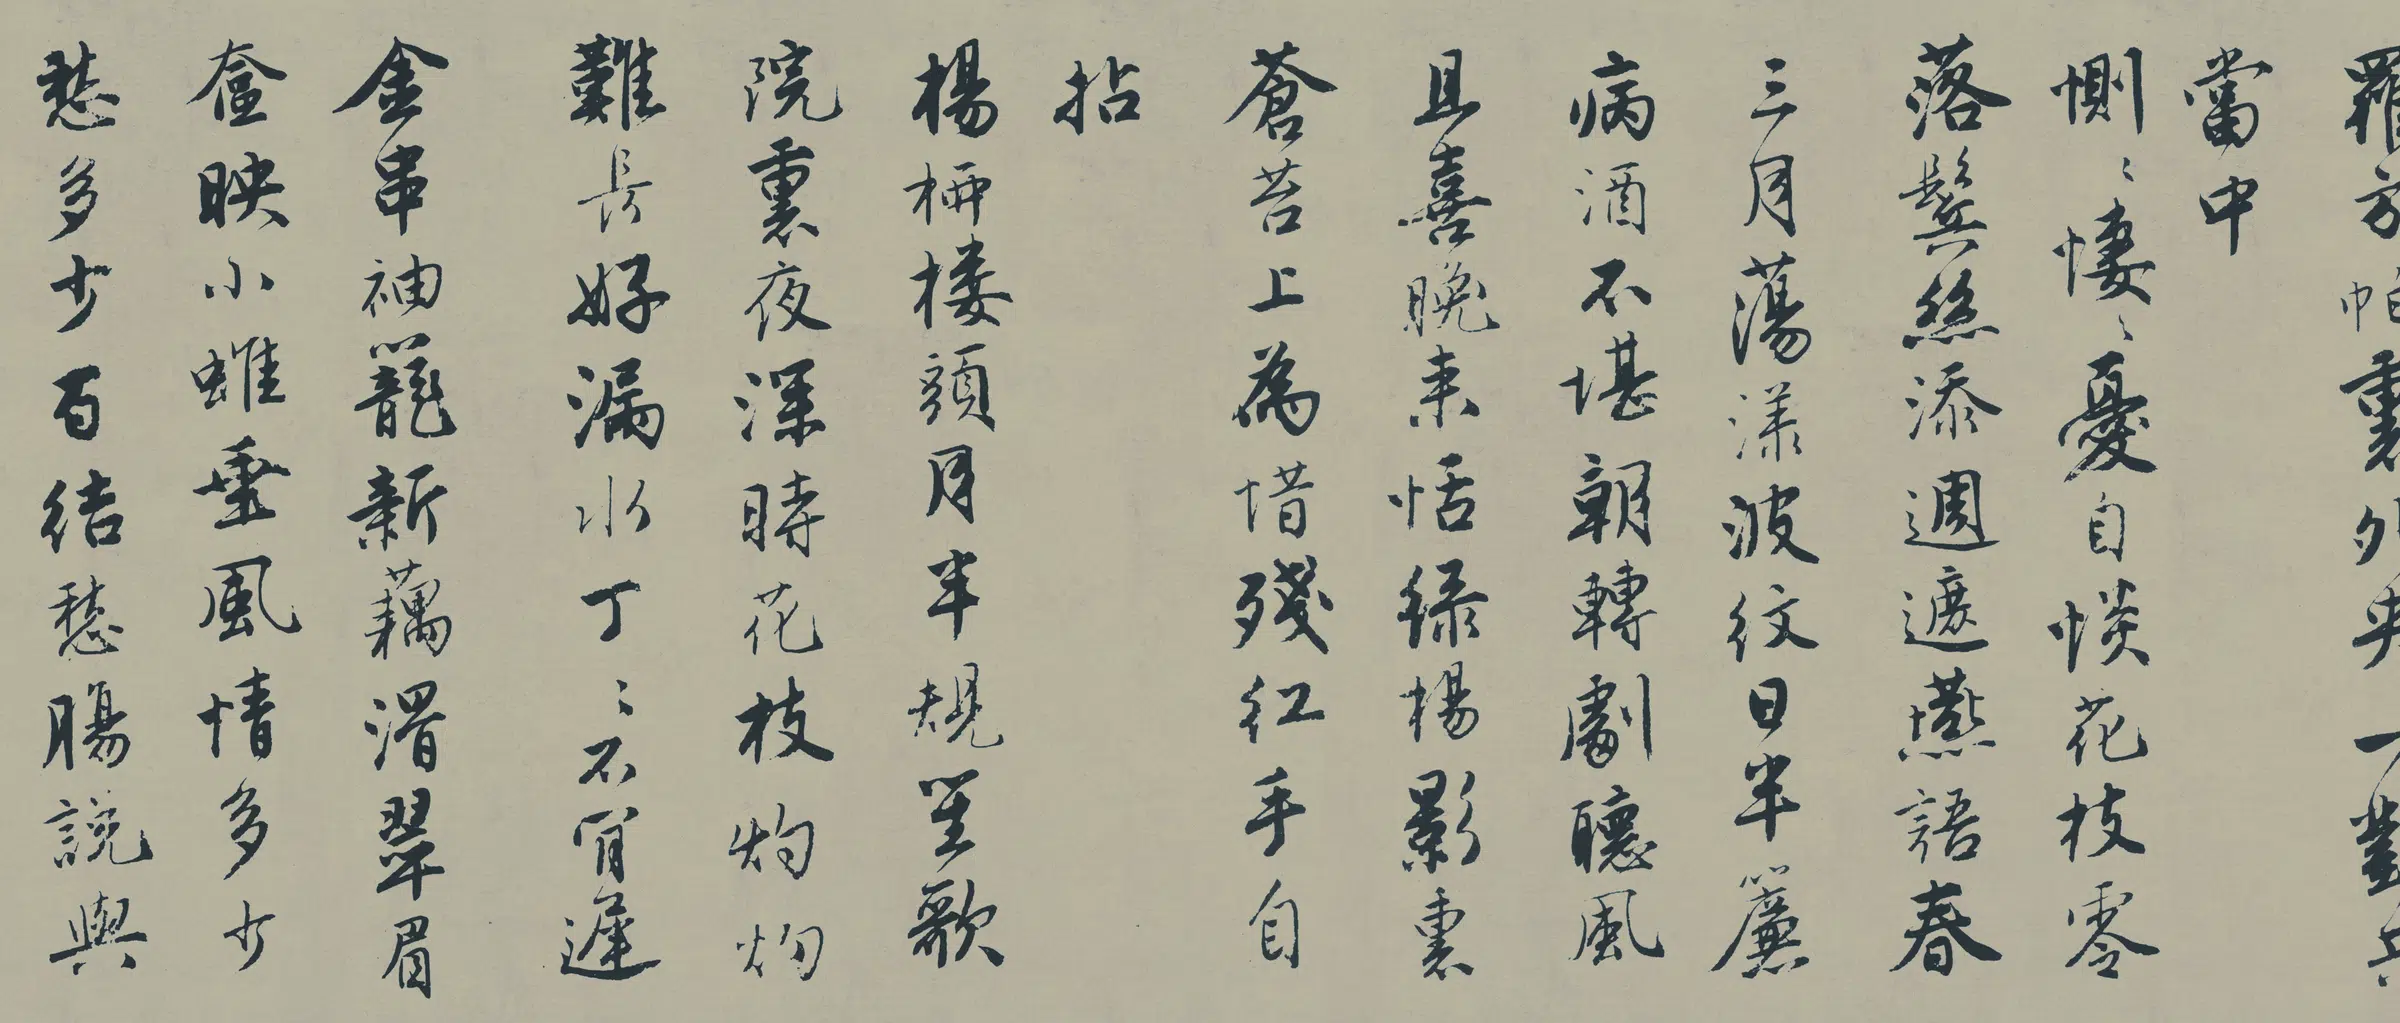 羅方帕裏外夾一
當中
惻〻悽〻憂自惔花枝零
落鬢絲添週遮燕語春
三月蕩漾波紋日半簾
病酒不堪朝轉劇聽風
且喜晚來恬綠楊影裏
蒼苔上為惜殘紅手自
拈
楊柳楼頭月半規笙歌
院裏夜深時花枝灼灼
難長好漏水丁〻不肎遲
金串袖籠新藕滑翠眉
奩映小蜼垂風情多少
愁多少百結愁腸說與